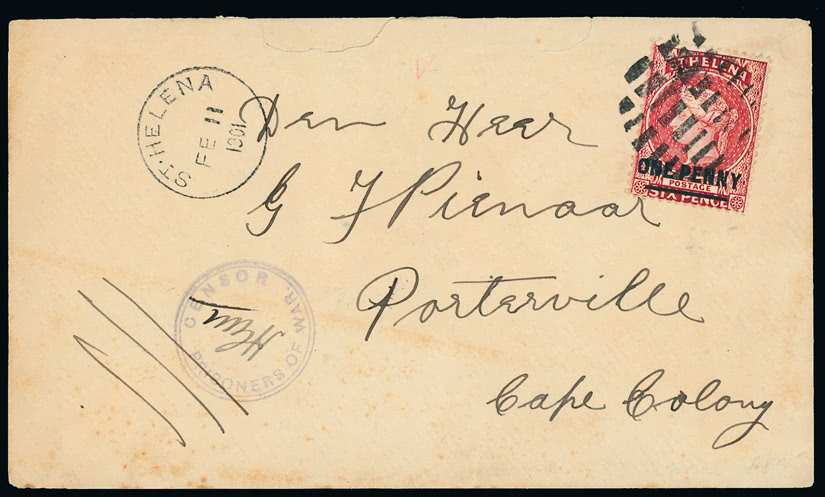 ST. HELENA
FE 11
1901
ST HELENA
ONE PENNY
POSTAGE
SIX PENCE
Den Heer
G J Pienaar
Porterville
Cape Colony
CENSOR
PRISONERS OF WAR.